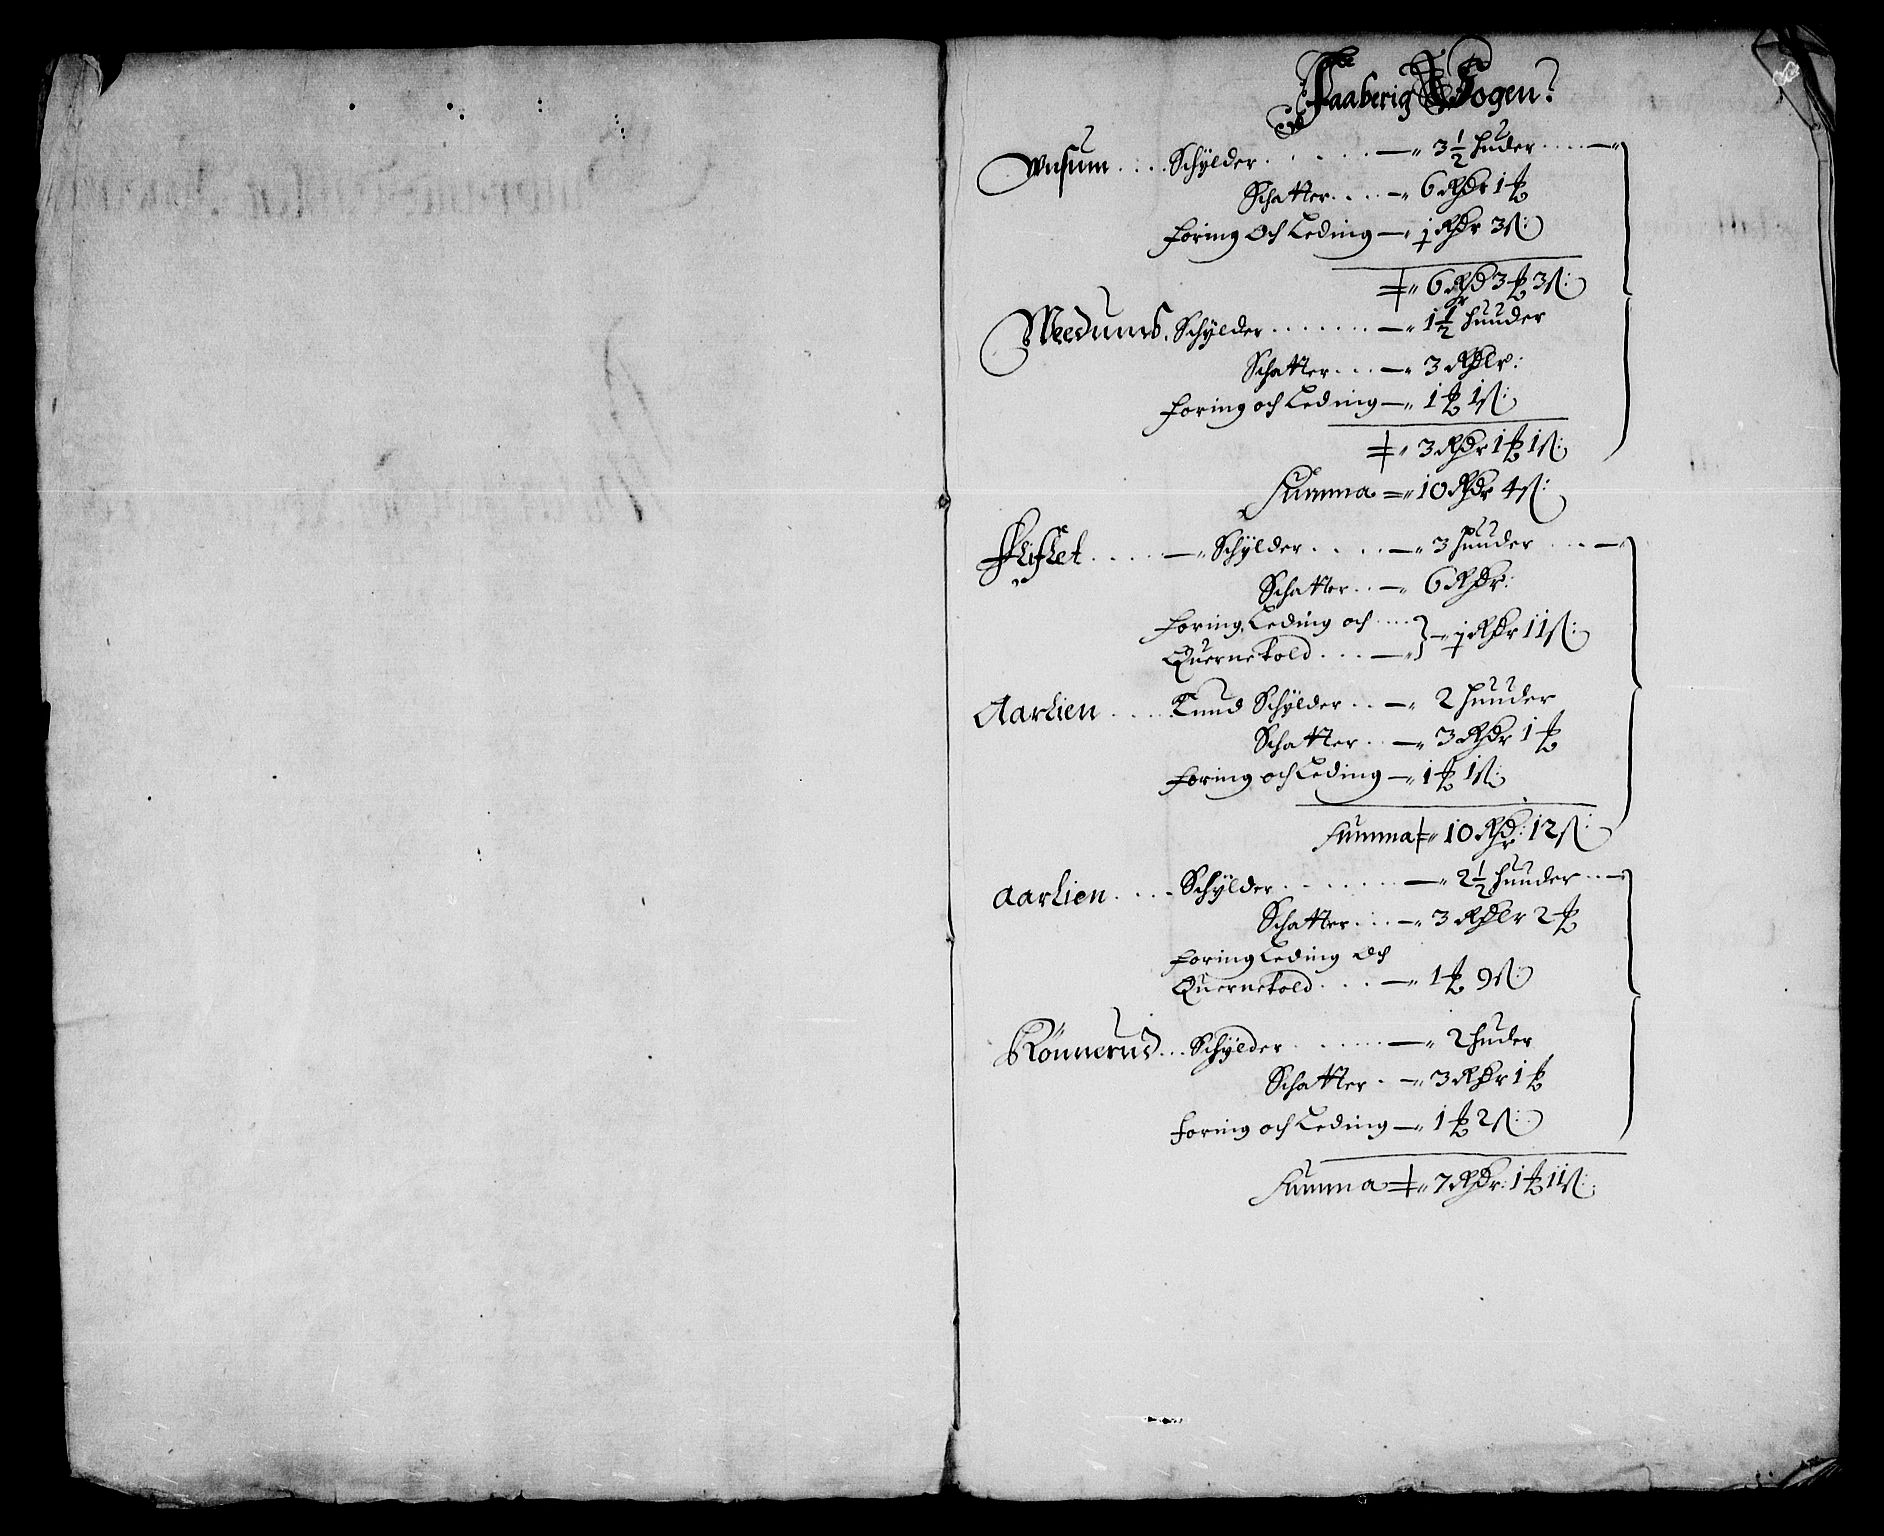 Faaberig Sogen:
Wusum Schÿlder 3½ huder
Schatter 6 Rdr 1 ℔
Foring Och Leding 1 Rdr 3 ß:
6 Rdr 3 ℔ 3 ß:
Meedums Schÿlder 1½ huuder
Schatter 3 Rdlr:
Foring och Leding 1 ℔ 1 ß:
3 Rdr 1 ℔ 1 ß:
Summa 10 Rdr 4 ß:
Flifled Schÿlder 3 huuder
Schatter 6 Rdr:
Foring, Leding och
Quernetold 1 Rdr 11 ß:
Aarlien Knud Schÿlder 2 huuder
Schatter 3 Rdr 1 ℔
Foring och Leding 1 ℔ 1 ß:
Summa 10 Rdr: 12 ß:
Aarlien Schÿlder 2½ huuder
Schatter 3 Rdlr 2 ℔
Foring Leding Och
Quernetold 1 ℔ 9 ß:
Rönnerud Schÿlder 2 huder
Schatter 3 Rdr 1 ℔
Foring och Leding 1 ℔ 2 ß:
Summa 7 Rdr: 1 ℔ 11 ß: